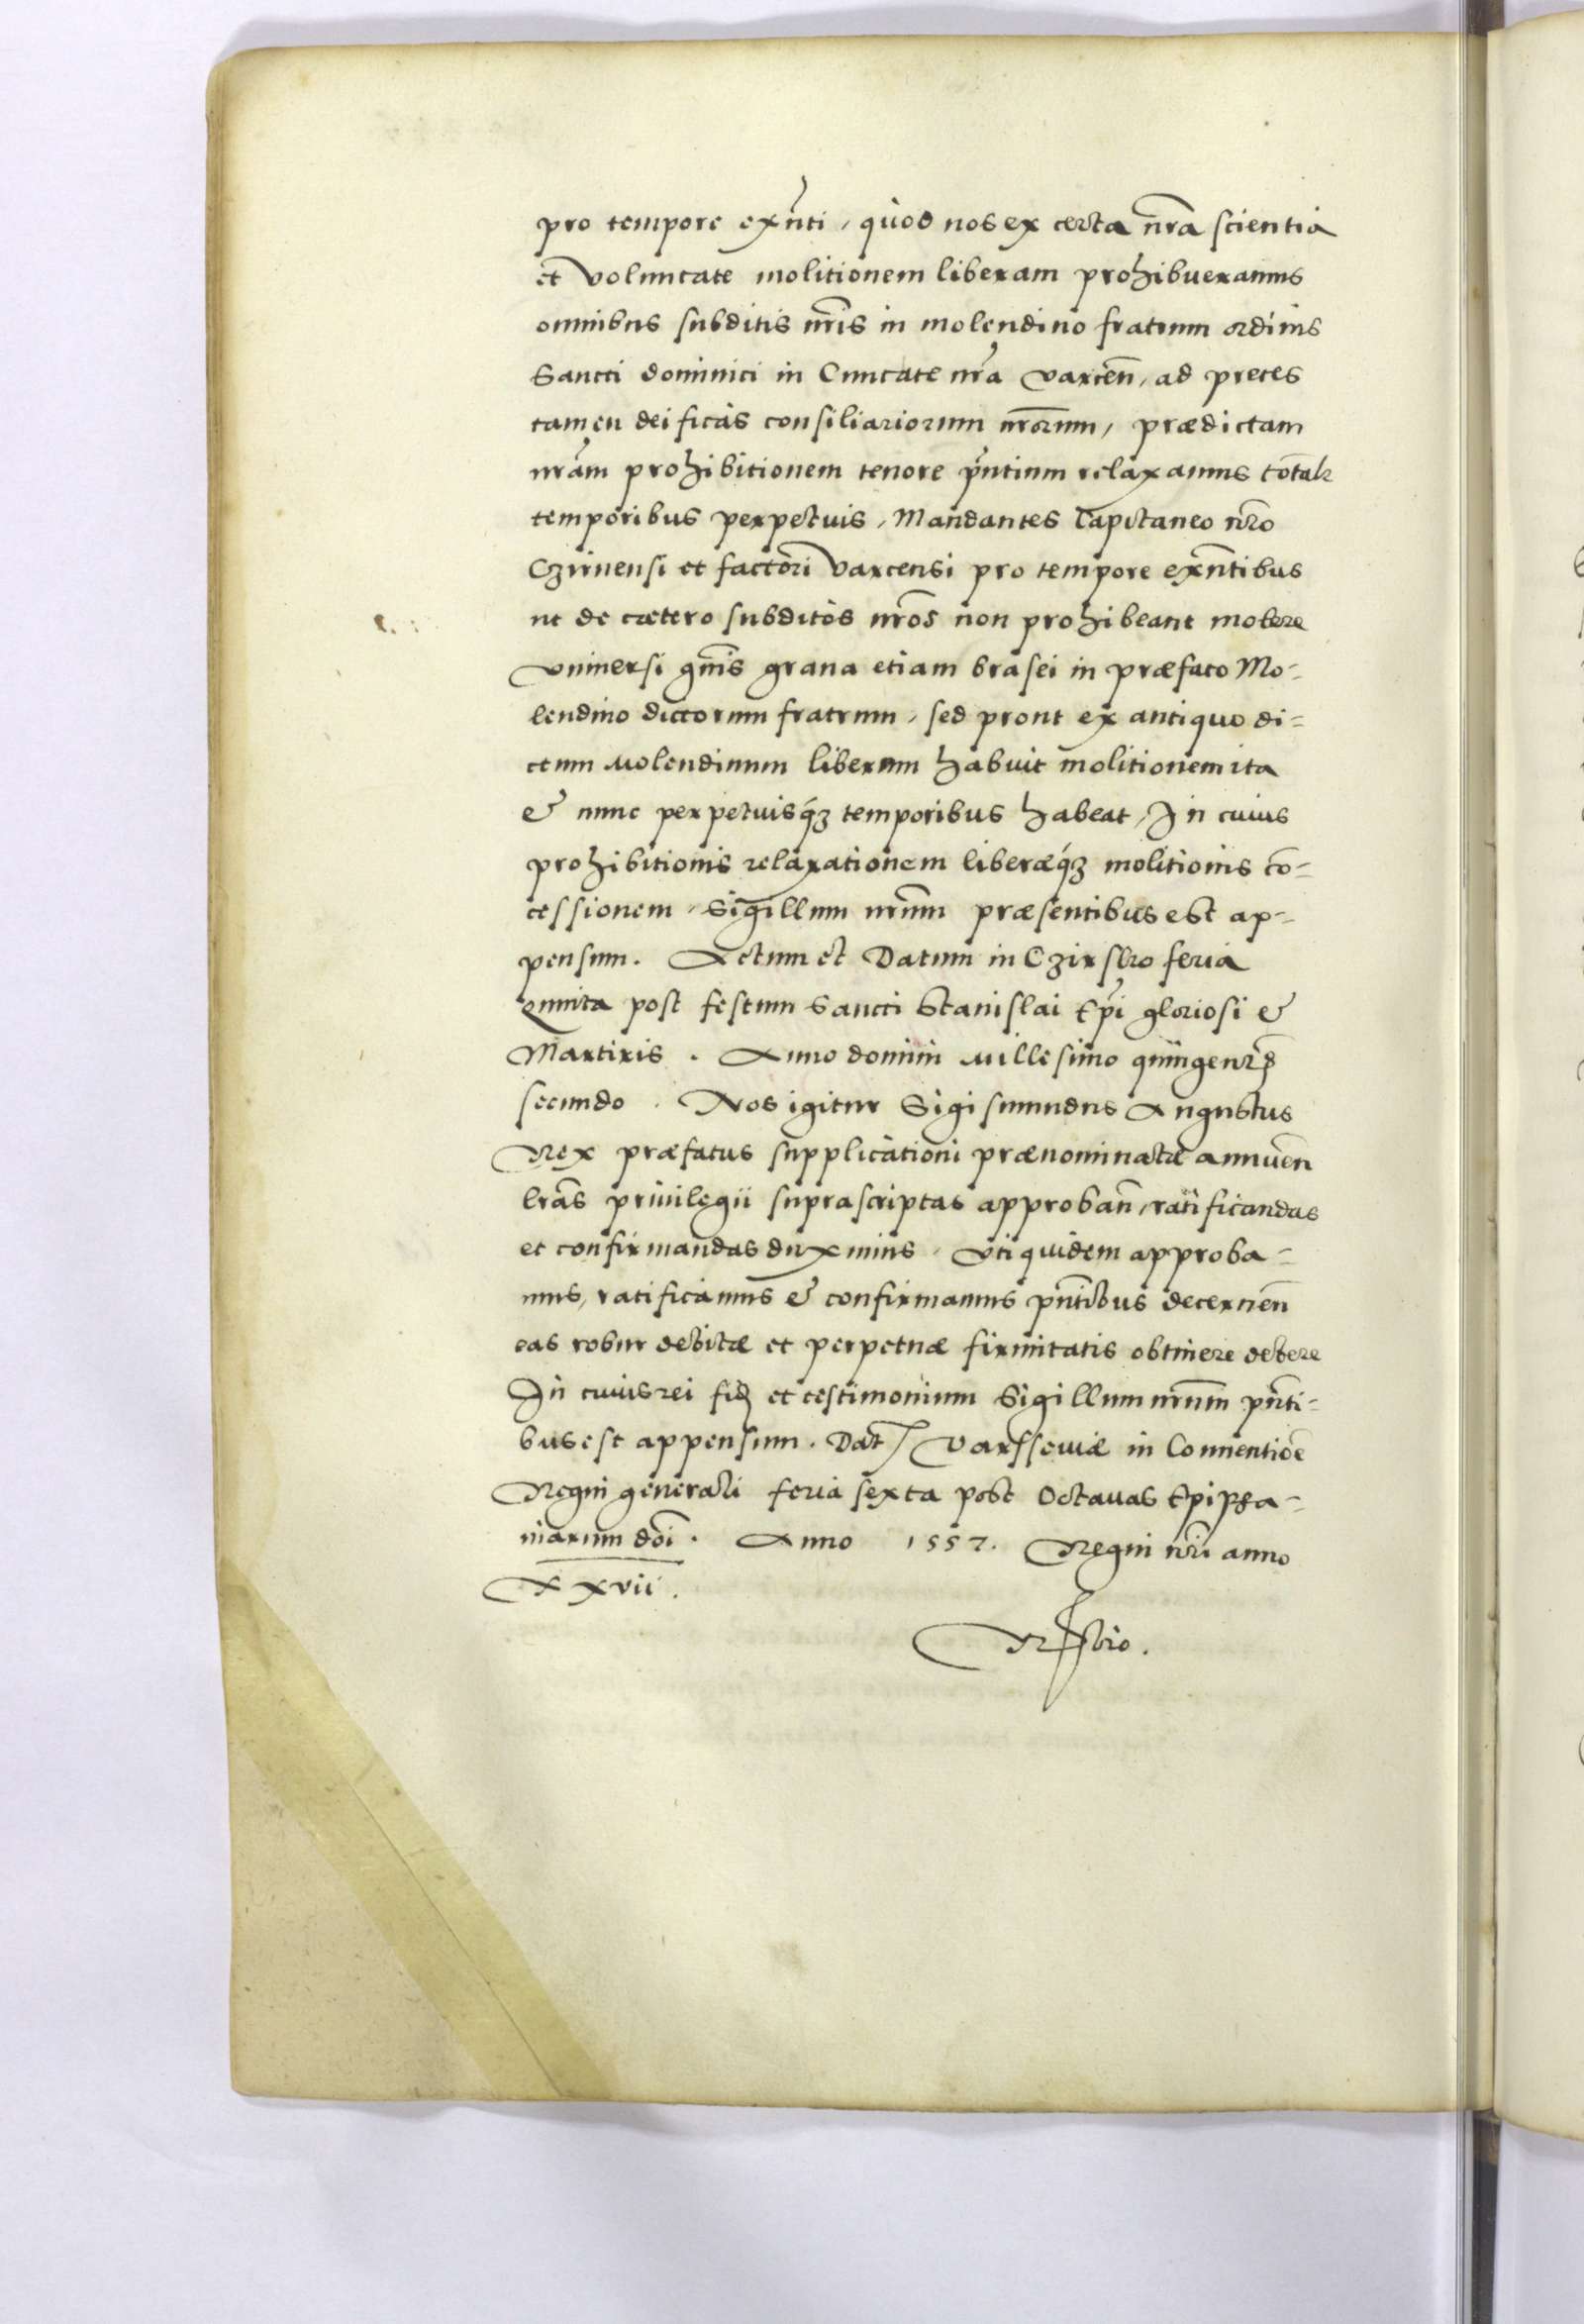 pro tempore exn̄ti, quod nos ex certa nr̄a scientia
et voluntate molitionem liberam prohibueramus
omnibus subditis nr̄is in molendino fratrum ordinis
Sancti dominici in Ciuitate nr̄a varcen̄, ad preces
tamen deificas consiliariorum nr̄orum, prædictam
nr̄am prohibitionem tenore pn̄tium relaxamus
temporibus perpetuis, Mandantes Capitaneo nr̄o
Czirnensi et factori varcensi pro tempore exn̄tibus
ut de cætero subditos nr̄os non prohibeant molere
vniuersi gn̄is grana etiam brasei in præfato Mo-
lendino dictorum fratrum, sed prout ex antiquo di-
ctum Molendinum liberam habuit molitionem ita
& nunc perpetuisq́ꝫ temporibus habeat, In cuius
prohibitionis relaxationem liberæq́ꝫ molitionis co-
cessionem, Sigillum nr̄um præsentibus est ap-
pensum. Actum et Datum in Czirsko feria
quinta post festum Sancti Stanislai Ep̄i gloriosi &
Martiris. Anno domini Millesimo quingent̄o
secundo. Nos igitur Sigismundus Augustus
Rex præfatus supplicationi prænominatæ annuen̄
lr̄as priuilegii suprascriptas approban̄, ratificandas
et confirmandas duximus, vti quidem approba-
mus, ratificamus & confirmamus pn̄tibus decernen̄
eas robur debitæ et perpetuæ firmitatis obtinere debere
In cuius rei fid̄ et testimonium Sigillum nr̄um pn̄ti-
bus est appensum. Dat̄ Varsseuiæ in Conuentioē
Regni generali feria sexta post Octauas Epipha-
niarum dn̄i. Anno 1557. Regni nr̄i anno
XXvii.